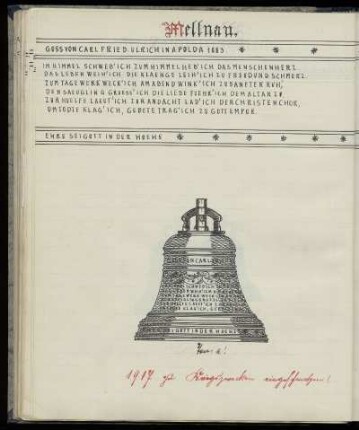 Mellnau.
GUSS VON CARL FRIED. ULRICH IN APOLDA 1883
IM HIMMEL SCHWEB' ICH ZUM HIMMEL HEB' ICH DAS MENSCHENHERZ.
DAS LEBEN WEIH' ICH. DIE KLAENGE LEIH' ICH ZU FREUD UND SCHMERZ.
ZUM TAGEWERK WECK' ICH AM ABEND WINK' ICH ZU SANFTER RUH,
DEN SAEUGLING GRUESS' ICH DIE LIEBE FUEHR' ICH DEM ALTAR ZU.
ZUR HUELFE LAUT' ICH, ZUR ANDACHT LAD' ICH DER CHRISTEN CHOR,
DIE TODTE KLAG' ICH, GEBETE TRAG' ICH ZU GOTT EMPOR.
EHRE SEI GOTT IN DER HOEHE
N CARL
GOTT IN DER HOEHE
1917 zu Kriegszwecken eingeschmolzen!